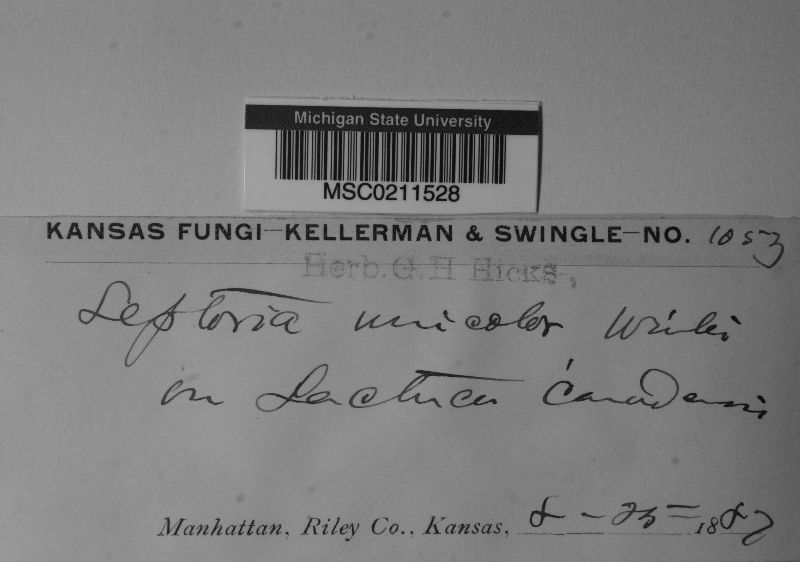 Michigan State University
MSC0211528
KANSAS FUNGI—KELLERMAN & SWINGLE—NO. 1053
Herb. G. H Hicks,
Septoria unicolor Winter
on Lactuca Canadensis
Manhattan, Riley Co., Kansas, 8-25= 1887